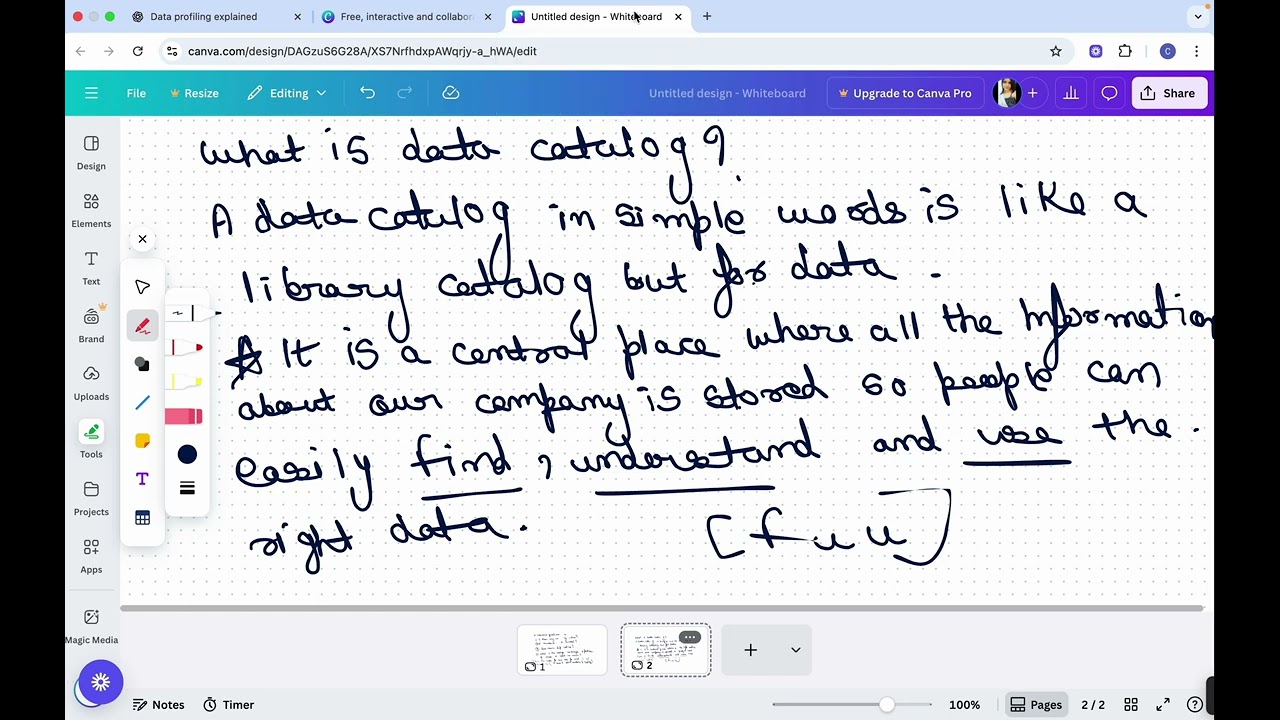 Data profiling explained
Free, interactive and collabor
Untitled design - Whiteboard
canva.com/design/DAGzuS6G28A/XS7NrfhdxpAWqrjy-a_hWA/edit
C
File
Resize
Editing
Untitled design - Whiteboard
Upgrade to Canva Pro
Share
Design
Elements
Text
Brand
Uploads
Tools
Projects
Apps
Magic Media
what is data catalog?
A data catalog in simple words is like a
library catalog but for data.
It is a central place where all the Information
about our company is stored so people can
easily find, understand and use the
right data.
[f u u]
1
2
Notes
Timer
100%
Pages
2 / 2